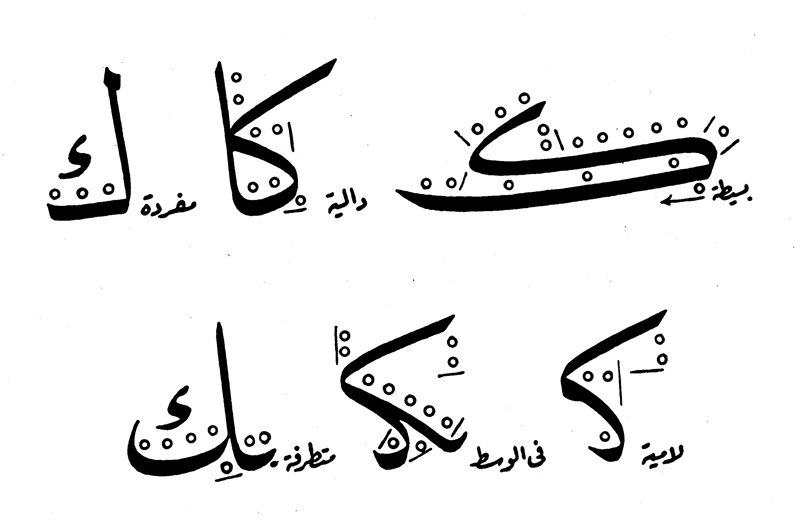 بسيطة ك دالية كا مفردة ك
لامية كـ فى الوسط متطرفة بك